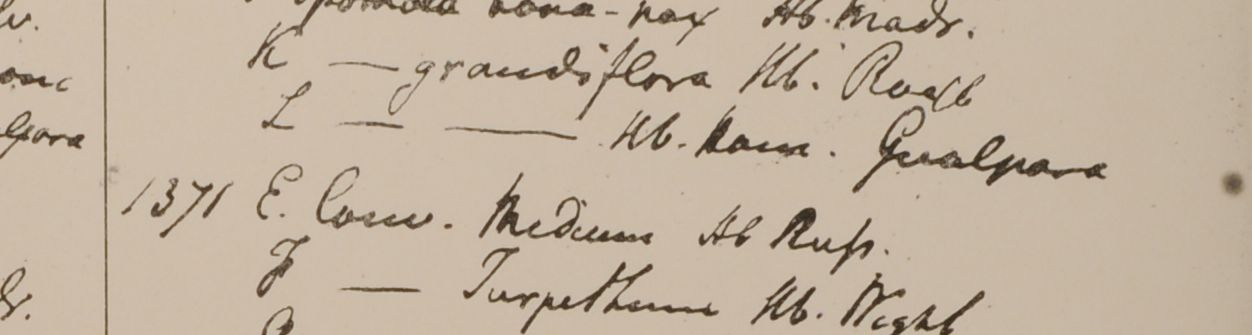 Ipomoea bona-nox Hb. Madr.
K — grandiflora Hb. Roxb
L — —— Hb. Ham. Gualpara
1371 E. Conv. Medium Hb Russ.
F — Turpethum Hb. Wight
G